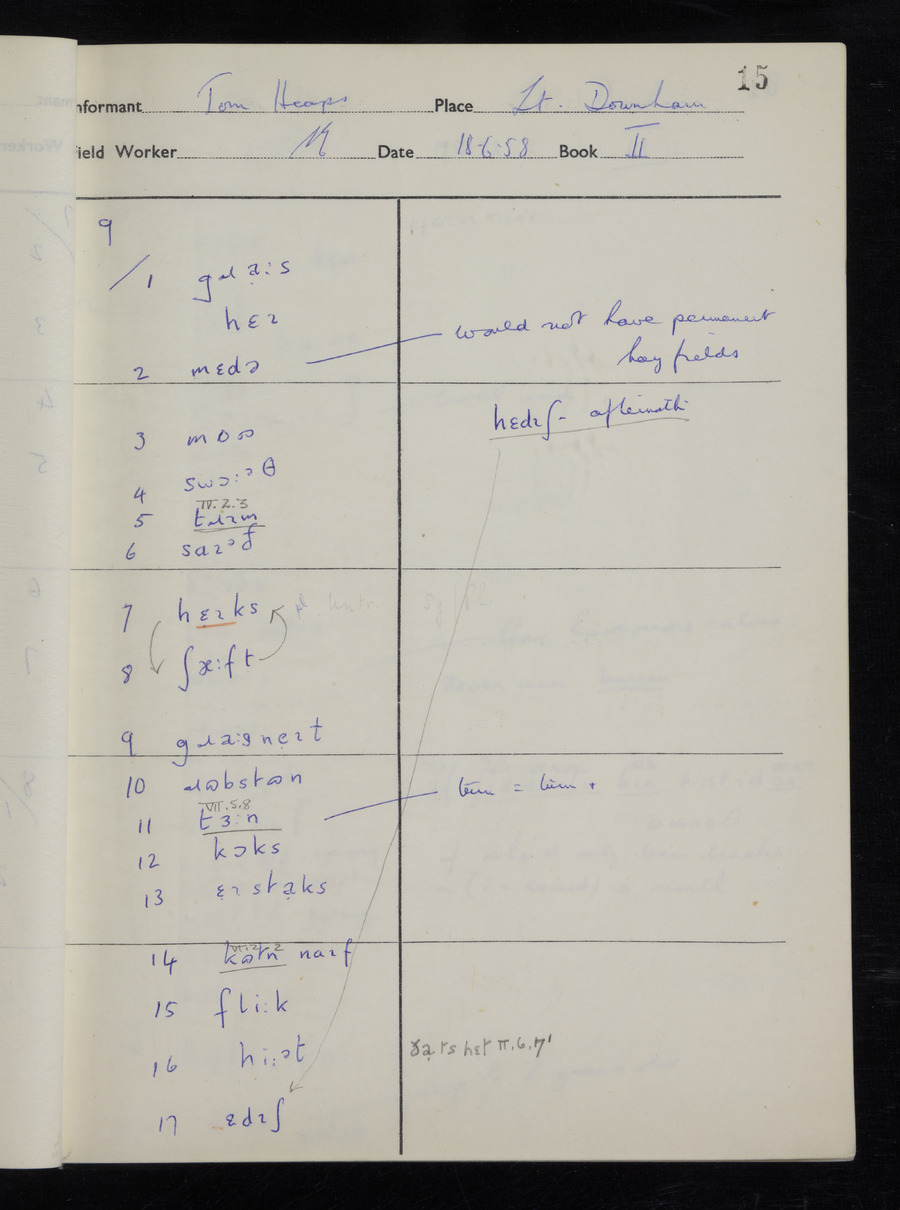 15
nformant Tom Heaps Place Lt. Downham
ield Worker Date 18-6-58 Book II
9
/1 gɹạːs
hɛɪ
2 mɛdə would not have permanent
hay fields
hɛdɪʃ - aftermath
3 mɒʊ
4 swɔːᵊθ
IV.2.3
5 tɹɪm
6 saɪᵊð
7 hɛɪks
8 ʃæːft
9 gɹạːsnẹɪt
10 ɹʊbstʊn
VII.5.8
11 tɜːn
12 kɔks
13 ɛɪstạks
14 kʊtn naɪf
15 fliːk
16 hiːət ɣạts hɛt II.6.7'
17 ɛdɪʃ